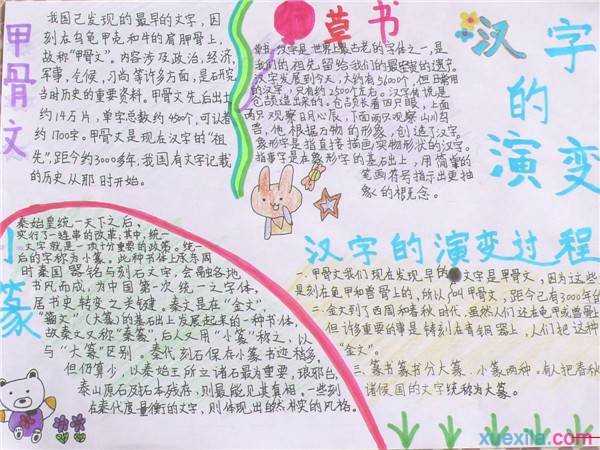 甲骨文
我国已发现的最早的文字，因
刻在乌龟甲壳和牛的肩胛骨上，
故称"甲骨文"。内容涉及政治，经济，
军事，气候，习尚等许多方面，是研究
当时历史的重要资料。甲骨文先后出土
约14万片，单字总数约4500个，可认者
约1700字。甲骨文是现在汉字的"祖
先"，距今约3000多年，我国有文字记载
的历史从那时开始。
草书
汉字是世界上最古老的字体之一，是
我们的祖先留给我们的最宝贵的遗产。
汉字发展到今天，大约有5600个，但日常用
的汉字，只有约2500个左右。汉字传说是
仓颉造出来的。仓颉长着四只眼，上面
两只观察日月心辰，下面两只观察山川鸟
兽，他根据万物的形象，创造了汉字。
象形字是指直接描画实物形状的汉字。
指事字是在象形字的基础上，用简单的
笔画符号指示出更抽
象的想念。
汉字
的
演变
小篆
秦始皇统一天下之后，
实行了一连串的改革，其中，统一
文字就是一项十分重要的政策。统一
后的字称为小篆。此种书体上承东周
时秦国器铭与刻石文字，会融各地
书风而成，为中国第一次统一之字体，
居书史转变之关键。秦文是在"金文"
"籀文"（大篆）的基础上发展起来的一种书体，
故秦文又称"秦篆"，后人又用"小篆"称之，以
与"大篆"区别。秦代刻石保存小篆书迹稍多，
但仍算少，以秦始王所之诸石最为重要，琅邪台，
泰山原石及拓本残存，则最能见其真相。一些刻
在秦代度量衡的文字，则体现出自然朴实的风格。
汉字的演变过程
一.甲骨文我们现在发现早的文字是甲骨文，因为这些
是刻在龟甲和兽骨上的，所以叫甲骨文，距今已有3000年的
二.金文到了西周和春秋时代，虽然人们还在龟甲或兽骨上
但许多重要的事是铸刻在青铜器上，人们把这种
"金文"。
三.篆书篆书分大篆、小篆两种。人们把春秋
诸侯国的文字统称为大篆。
xuexila.com